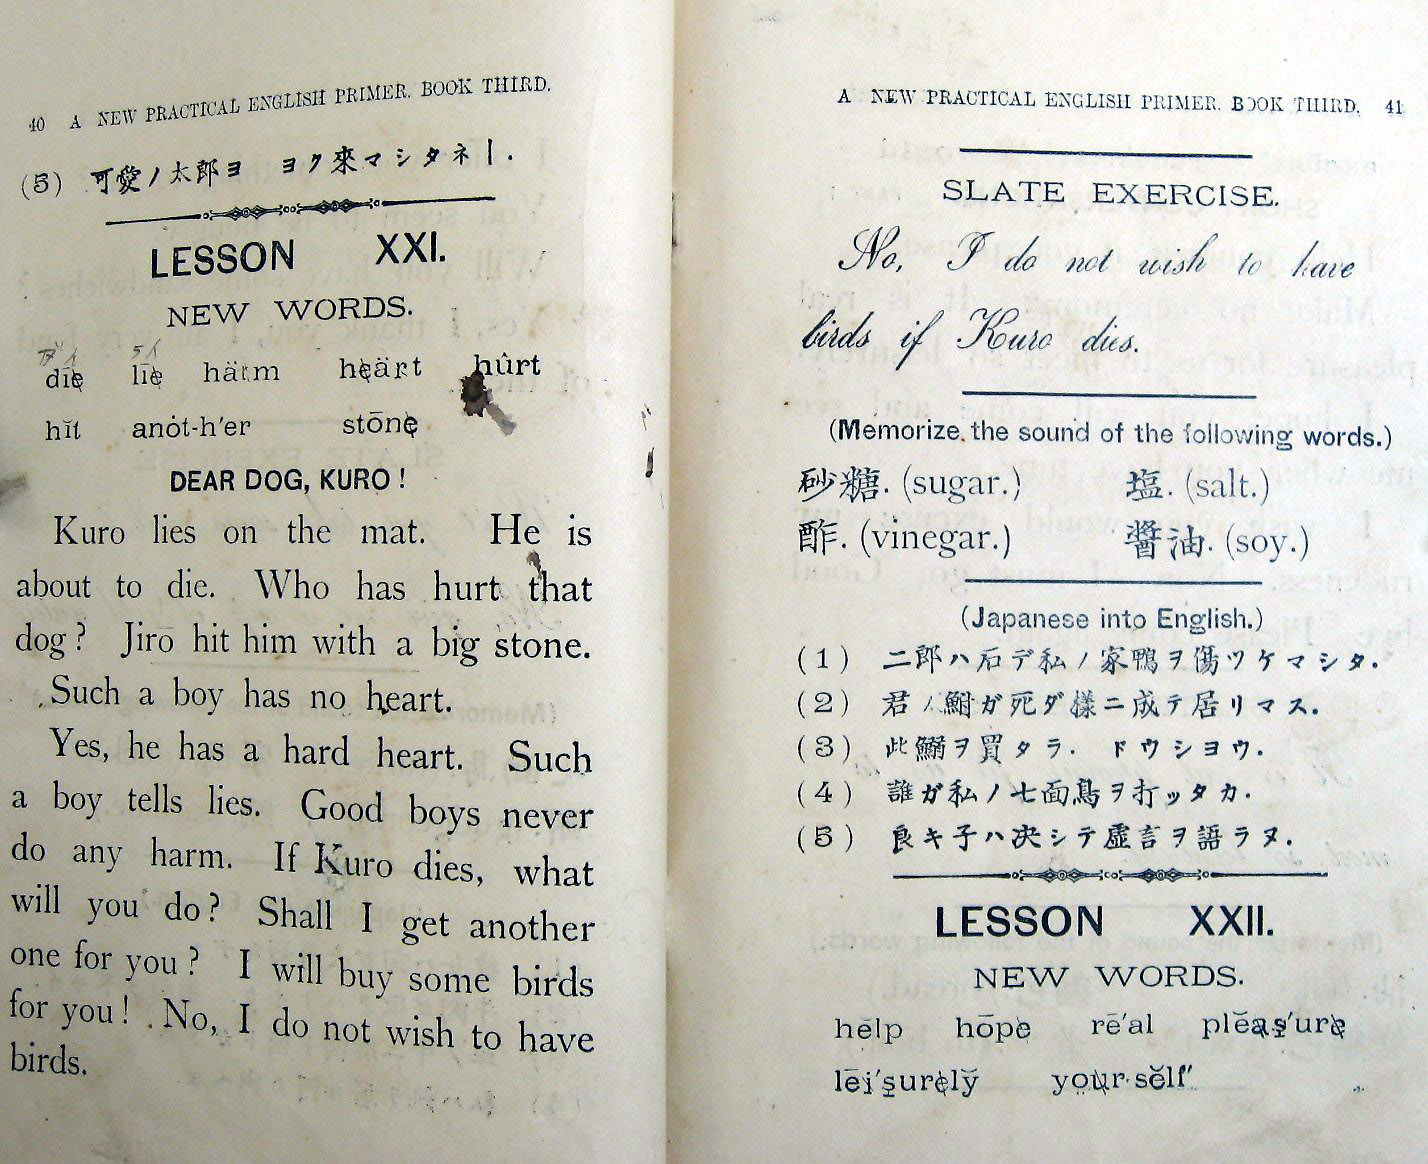 40 A NEW PRACTICAL ENGLISH PRIMER. BOOK THIRD.
(5) 可愛ノ太郎ヨ ヨク來マシタネー.
LESSON XXI.
NEW WORDS.
ダイ ライ
dīe līe härm heärt hûrt
hĭt anȯt-h'er stōne
DEAR DOG, KURO!
Kuro lies on the mat. He is
about to die. Who has hurt that
dog? Jirō hit him with a big stone.
Such a boy has no heart.
Yes, he has a hard heart. Such
a boy tells lies. Good boys never
do any harm. If Kuro dies, what
will you do? Shall I get another
one for you? I will buy some birds
for you! No, I do not wish to have
birds.
A NEW PRACTICAL ENGLISH PRIMER. BOOK THIRD. 41
SLATE EXERCISE.
No, I do not wish to have
birds if Kuro dies.
(Memorize the sound of the following words.)
砂糖. (sugar.) 塩. (salt.)
酢. (vinegar.) 醬油. (soy.)
(Japanese into English.)
(1) 二郎ハ石デ私ノ家鴨ヲ傷ツケマシタ.
(2) 君ノ鮒ガ死ダ樣ニ成テ居リマス.
(3) 此鰯ヲ買タラ. ドウシヨウ.
(4) 誰ガ私ノ七面鳥ヲ打ッタカ.
(5) 良キ子ハ决シテ虛言ヲ語ラヌ.
LESSON XXII.
NEW WORDS.
hĕlp hōpe rē'al plĕaş'ure
lēi'şurely̆ your-sĕlf'